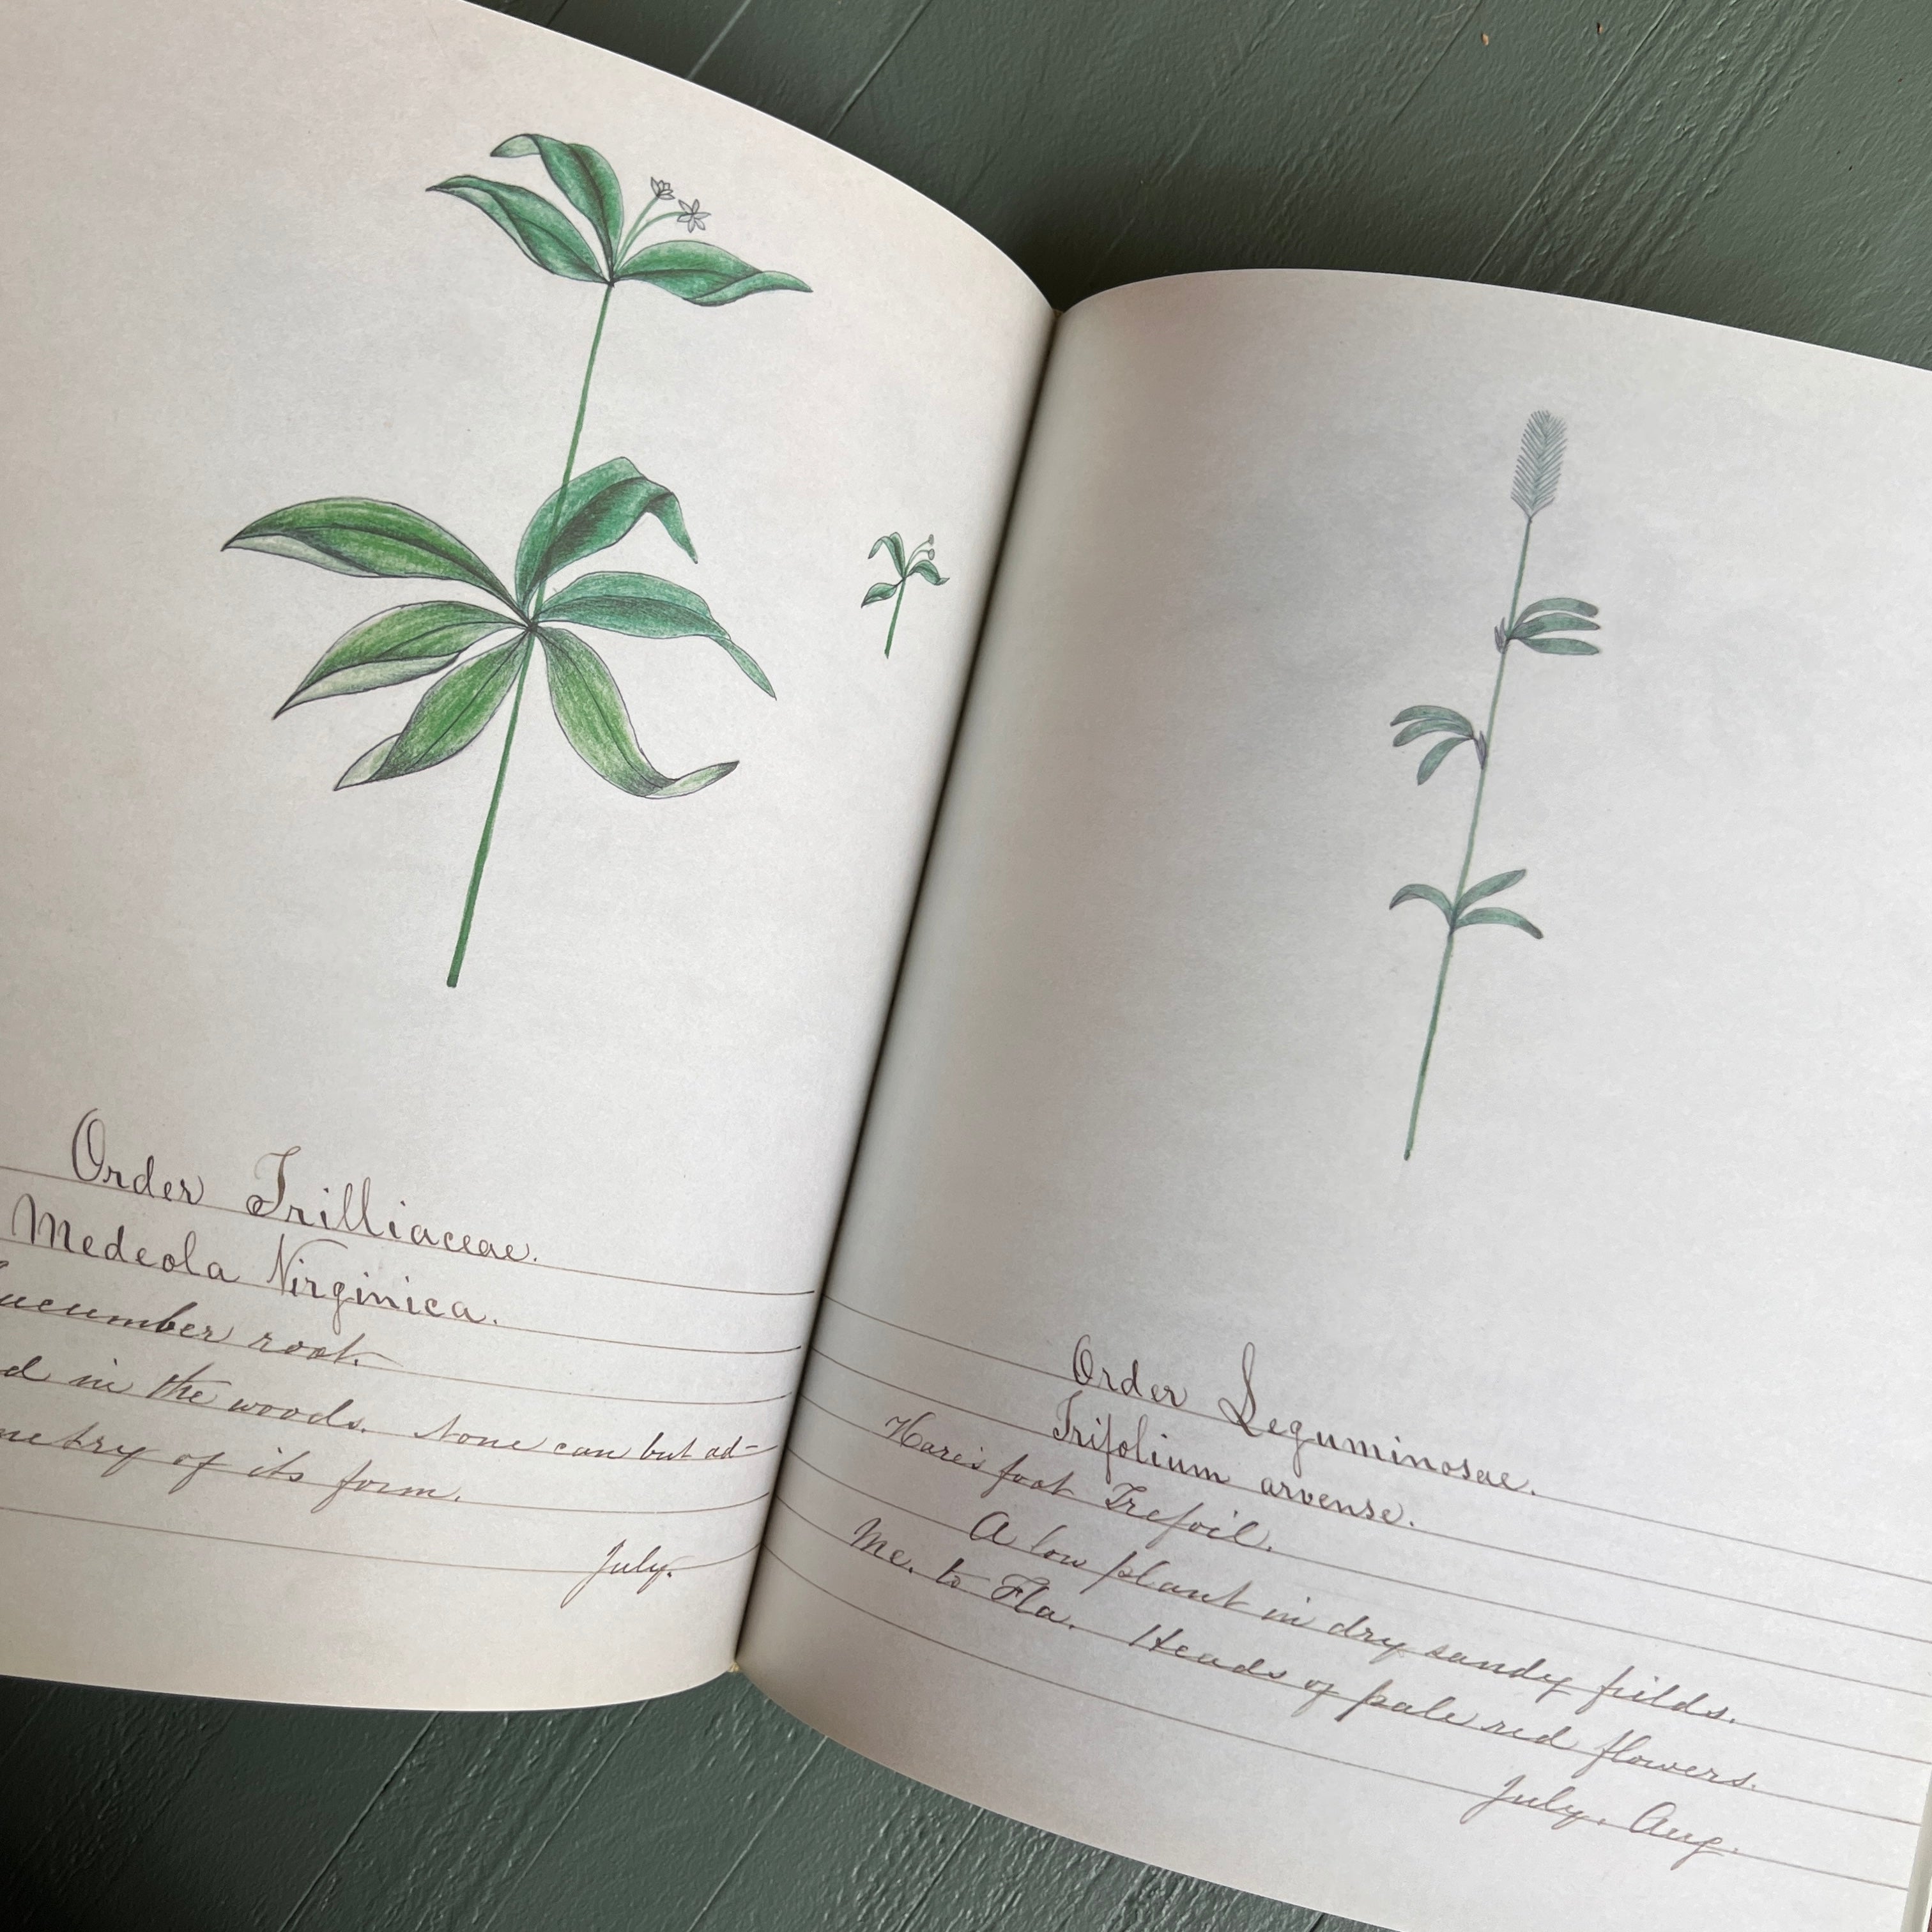 Order Trilliaceae.
Medeola Virginica.
ucumber root.
d in the woods. None can but ad-
metry of its form.
July.
Order Leguminosae.
Trifolium arvense.
Hare's foot Trefoil.
A low plant in dry sandy fields.
Me. to Fla. Heads of pale red flowers.
July. Aug.